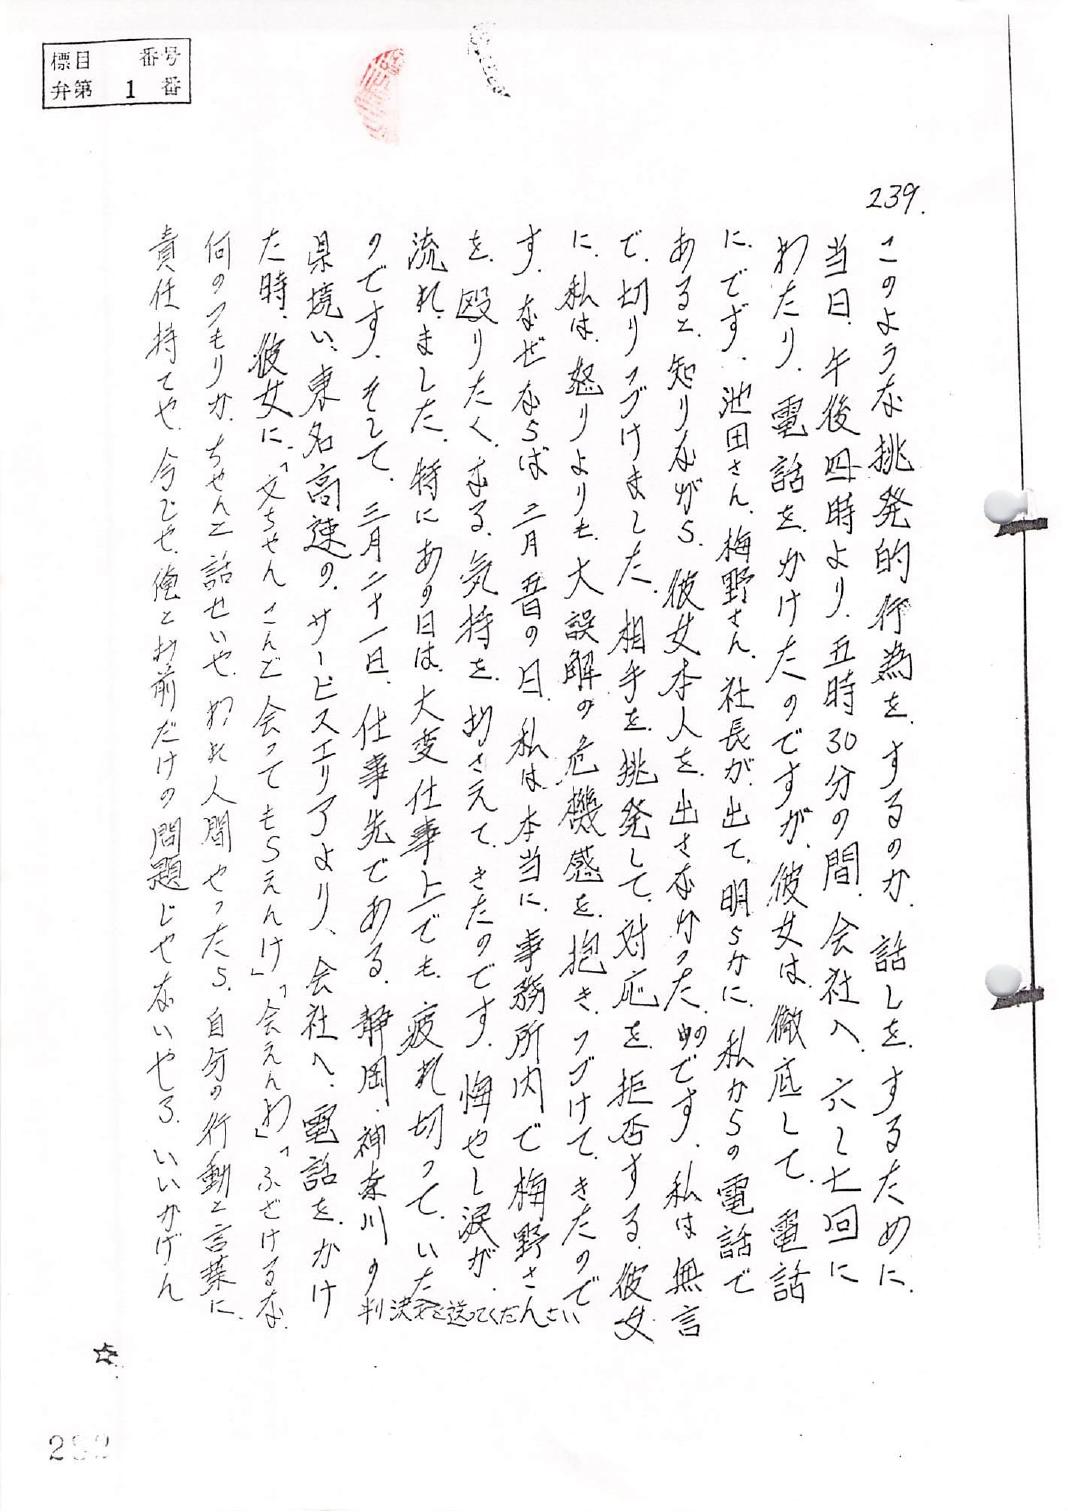 標目 番号
弁第 1 番
239.
このような挑発的行為を、するのか、話しを、するために、
当日、午後四時より、五時30分の間、会社へ、六〜七回に
わたり、電話を、かけたのですが、彼女は、徹底して、電話
に、でず、池田さん、梅野さん、社長が、出て、明らかに、私からの電話で
あると、知りながら、彼女本人を、出さなかったのです、私は、無言
で、切りつづけました、相手を、挑発して、対応を、拒否する、彼女
に、私は、怒りよりも、大誤解の危機感を、抱き、つづけて、きたので
す、なぜならば、三月五日の日、私は、本当に、事務所内で、梅野さん
を、殴りたく、なる、気持を、おさえて、きたのです、悔やし涙が、
流れ、ました、特に、あの日は、大変仕事上でも、疲れ切って、いた
のです、そして、三月二十一日、仕事先である、静岡、神奈川の
県境い、東名高速の、サービスエリアより、会社へ、電話を、かけ
た時、彼女に、「文ちゃん、こんど会ってもらえんけ」「会えんわ」「ふざけるな、
何のつもりか、ちゃんと話せいや、われ人間やったら、自分の行動と言葉に、
責任持てや、今じゃ、俺とお前だけの問題じゃないやろ、いいかげん
判決文を送ってください
☆
292